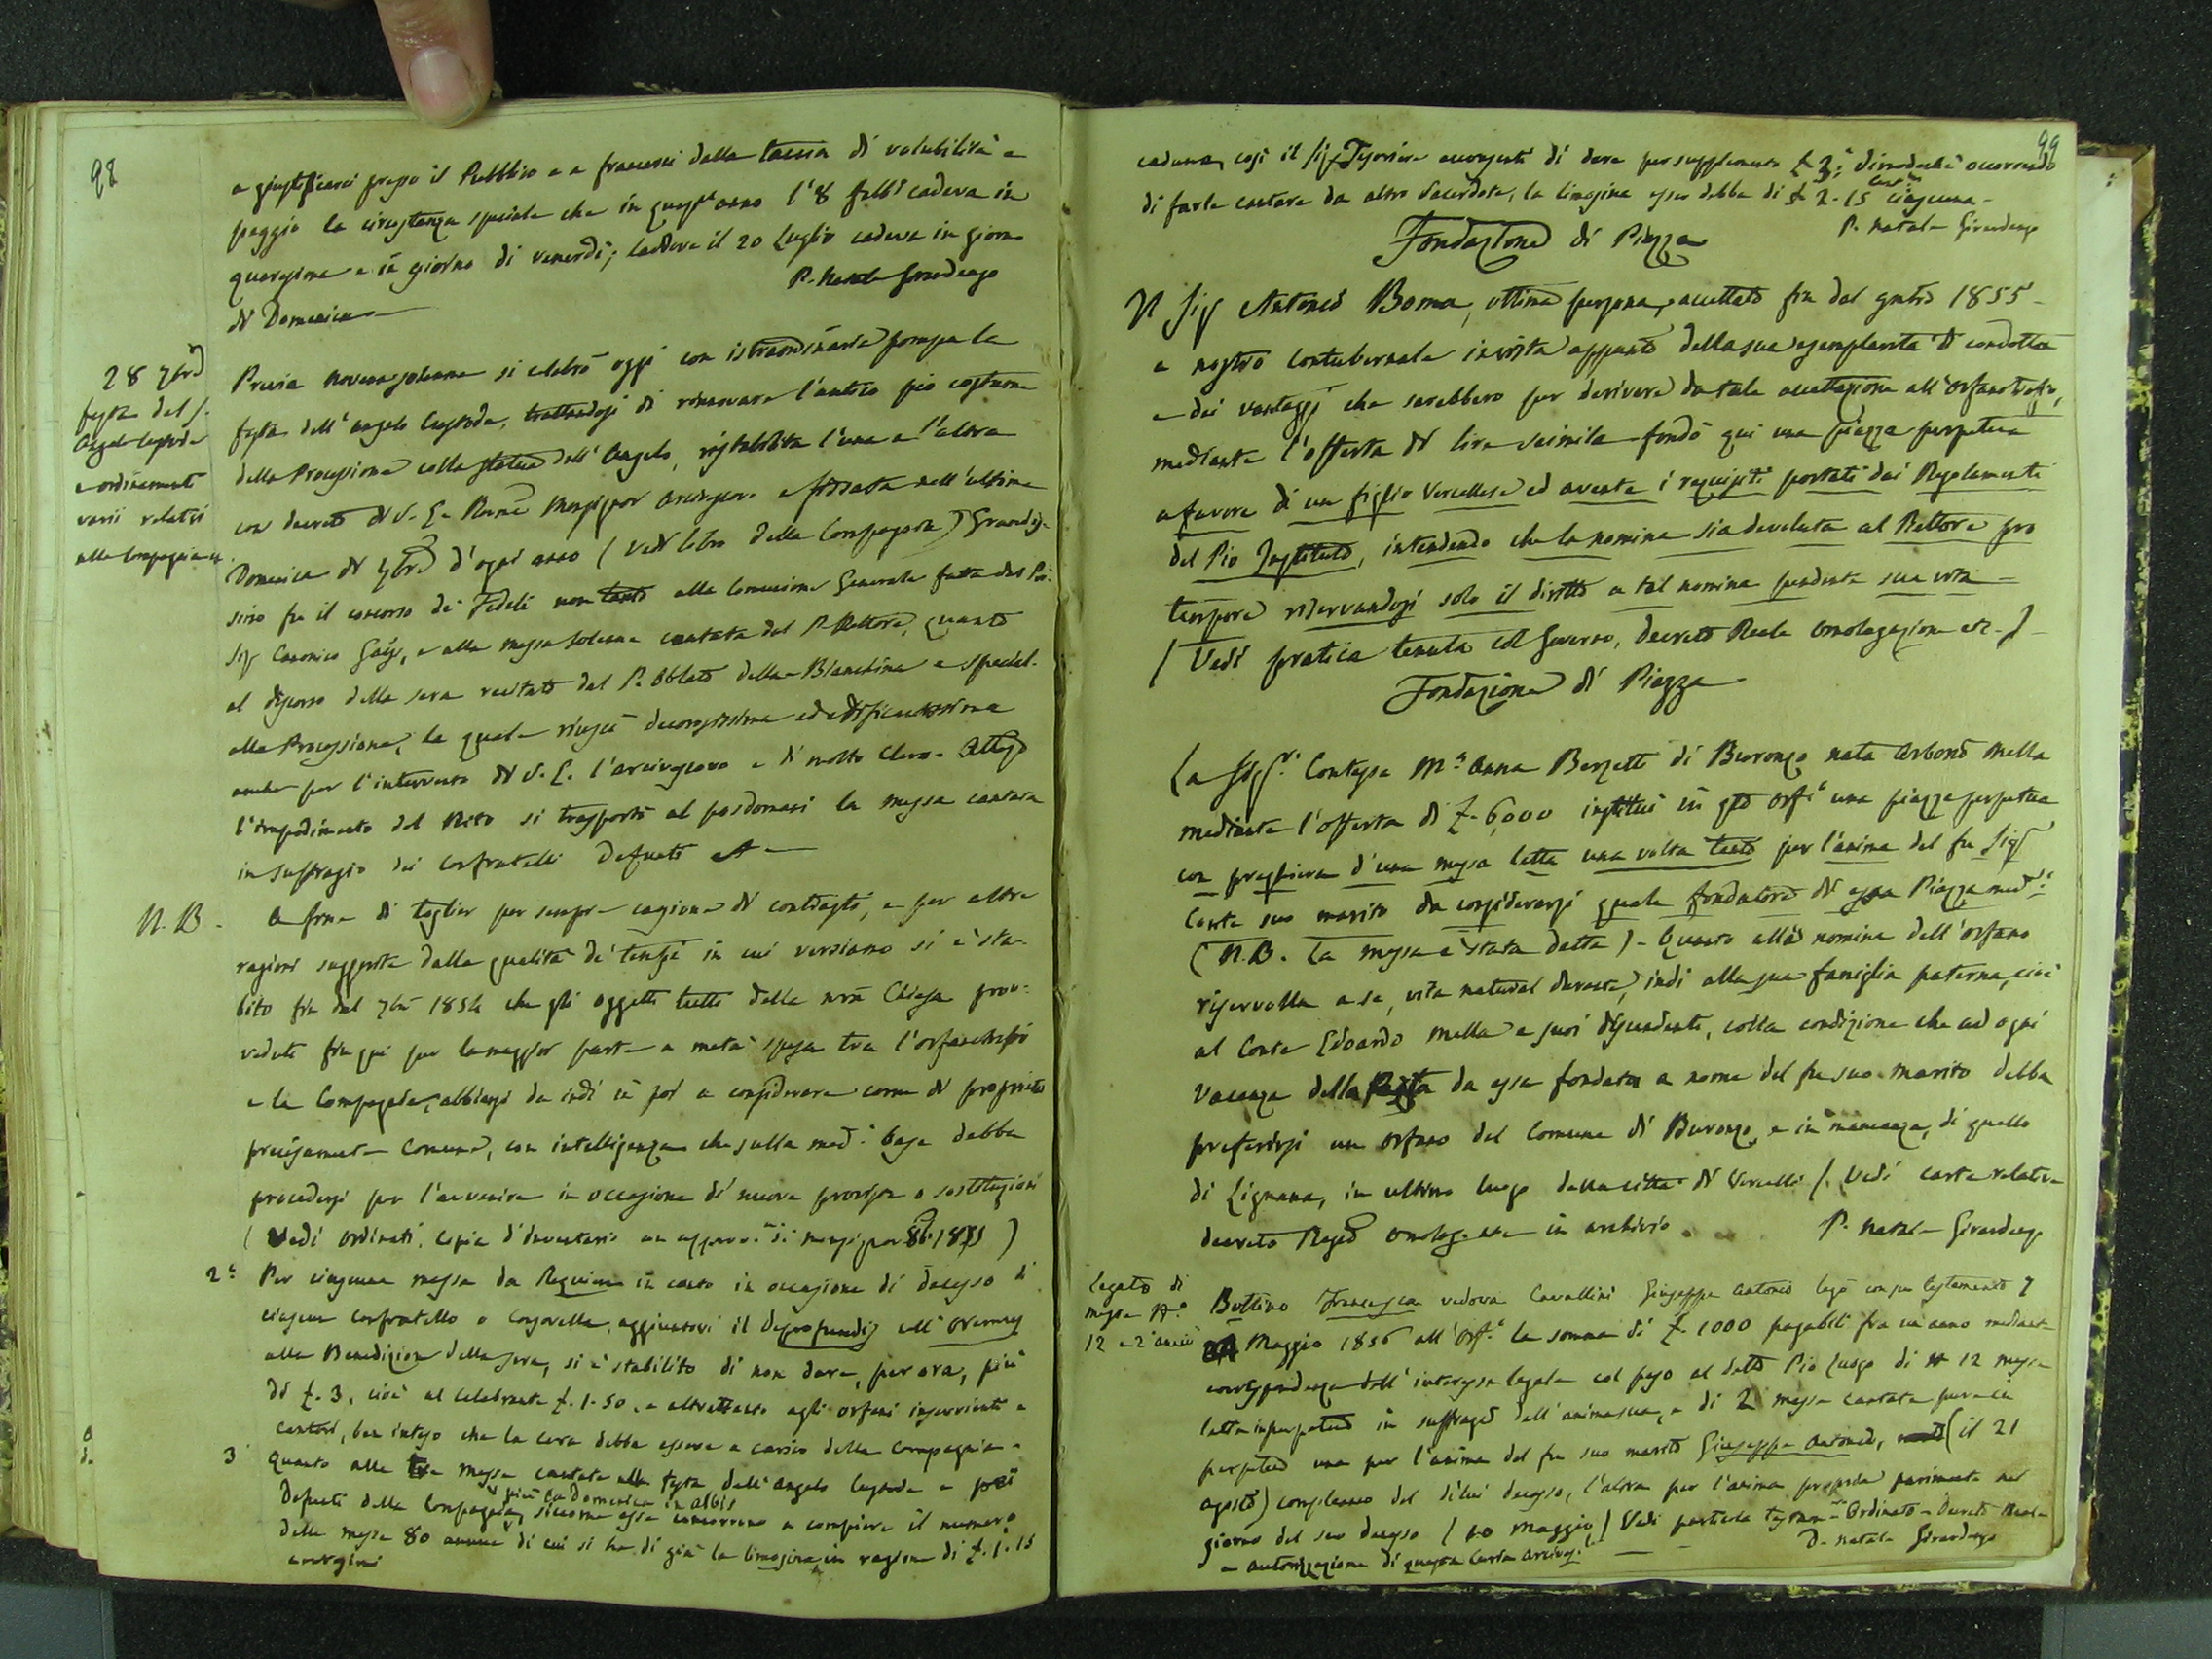 98
a giustificarci presso il Pubblico e a francarci dalla taccia di volubilità e
peggio la circostanza speciale che in quest'anno l'8 febb° cadeva in
quaresima e in giorno di venerdì; laddove il 20 Luglio cadeva in giorno
di Domenica
P. Natale Girardengo
28 7bre
festa del S.
Angelo Custode
e ordinamenti
varii relativi
alla Compagnia
Previa novena solenne si celebrò oggi con istraordinaria pompa la
festa dell'angelo Custode, trattandosi di rinnovare l'antico pio costume
della Processione colla statua dell'Angelo, ristabilita l'una e l'altra
con decreto di S. E. Monsignor Arcivescovo e fissata nell'ultima
Domenica di 7bre d'ogni anno (Vedi libro della Compagnia) Grandis-
simo fu il concorso de' Fedeli non tanto alla Comunione Generale fatta dal
Sig Canonico e alla messa solenne cantata dal P. Rettore, quanto
al discorso della sera recitato dal P. Oblato della Bianchina e special.
alla Processione, la quale riuscì decorosissima ed edificantissima
anche per l'intervento di S. E. l'arcivescovo e di molto Clero. Atteso
l'impedimento del Rito si trasportò al posdomani la messa cantata
in suffragio dei Confratelli Defunti
N.B. A fine di toglier per sempre cagione di contrasti, e per altre
ragioni suggerite dalla qualità de' tempi in cui versiamo si è sta-
bilito fin dal 7bre 1854 che gli oggetti tutti della nra Chiesa prov-
veduti fin qui per la maggior parte a metà spesa tra l'orfanotrofio
e la Compagnia, abbiansi da indi in poi a considerare come di proprietà
precisamente Comune, con intelligenza che sulla med.a base debba
procedersi per l'avvenire in occasione di nuove provviste o sostituzioni
(Vedi ordinati, copia d'inventario di monsignor 1855)
2° Per ciascuna messa da Requiem in canto in occasione di decesso di
ciascun confratello o consorella, aggiuntovi il Deprofundis coll'oremus
alla Benedizione della sera, si è stabilito di non dare, per ora, più
di £. 3, cioè al Celebrante £. 1.50, e altrettanto agli orfani inservienti e
cantori, ben inteso che la cera debba essere a carico della Compagnia.
3 Quanto alle tre messe cantate alla festa dell'angelo Custode e pei
più la Domenica in albis
Defunti della Compagnia, siccome esse concorrono a compiere il numero
delle messe 80 annue di cui si ha di già la limosina in ragione di £. 1.15
99
caduna, così il Sig Tesoriere di dare per supplemento £ 3; dimodochè occorrendo
di farle cantare da altro Sacerdote, la limosina esser debba di £ 2.15 ciascuna
P. Natale Girardengo
Fondazione di Piazza
Il Sig Antonio Boma, ottima persona, accettato fin dal 1855
a nostro Contubernale in vista appunto della sua esemplarità di condotta
e dei vantaggi che sarebbero per derivare da tale accettazione all'orfanotrofio,
mediante l'offerta di lire seimila fondò qui una piazza perpetua
a favore di un figlio Vercellese ed avente i requisiti portati dai Regolamenti
del Pio Instituto, intendendo che la nomina sia devoluta al Rettore pro
tempore riservandosi solo il diritto a tal nomina pendente sua vita
(Vedi pratica tenuta col Governo, decreto Reale Omologazione etc.)
Fondazione di Piazza
La Sig.ra Contessa M.a Anna Berzetti di Buronzo nata Arborio Mella
mediante l'offerta di £. 6,000 instituì in qto Orf° una piazza perpetua
con preghiera d'una messa letta una volta tanto per l'anima del fu Sig
Conte suo marito da considerarsi quale fondatore di essa Piazza med.a
(N.B. La messa è stata detta) - Quanto alla nomina dell'orfano
riservolla a se, vita natural durante, indi alla sua famiglia paterna, cioè
al Conte Edoardo Mella e suoi discendenti, colla condizione che ad ogni
Vacanza della Piazza da essa fondata a nome del fu suo marito debba
preferirsi un orfano del Comune di Buronzo, e in mancanza, di quello
di Lignana, in ultimo luogo della città di Vercelli (Vedi carte relative
decreto Regio in archivio
P. Natale Girardengo
Legato di
messe N°
12 e 2 annue
Bottino Francesca vedova Cavallini Giuseppe Antonio legò con suo testamento 7
Maggio 1856 all'Orf.° la somma di £. 1000 pagabili fra un anno mediante
corrispondenza dell'interesse legale col peso al detto Pio Luogo di N 12 messe
lette in perpetuo in suffragio dell'anima sua, e di 2 messe cantate pure in
perpetuo una per l'anima del fu suo marito Giuseppe Antonio, (il 21
agosto) compleanno del di lui decesso, l'altra per l'anima propria parimente nel
giorno del suo decesso (10 maggio) Vedi particola testam. Ordinato - Decreto Reale
e autorizzazione di questa Curia Arcives.
D. Natale Girardengo